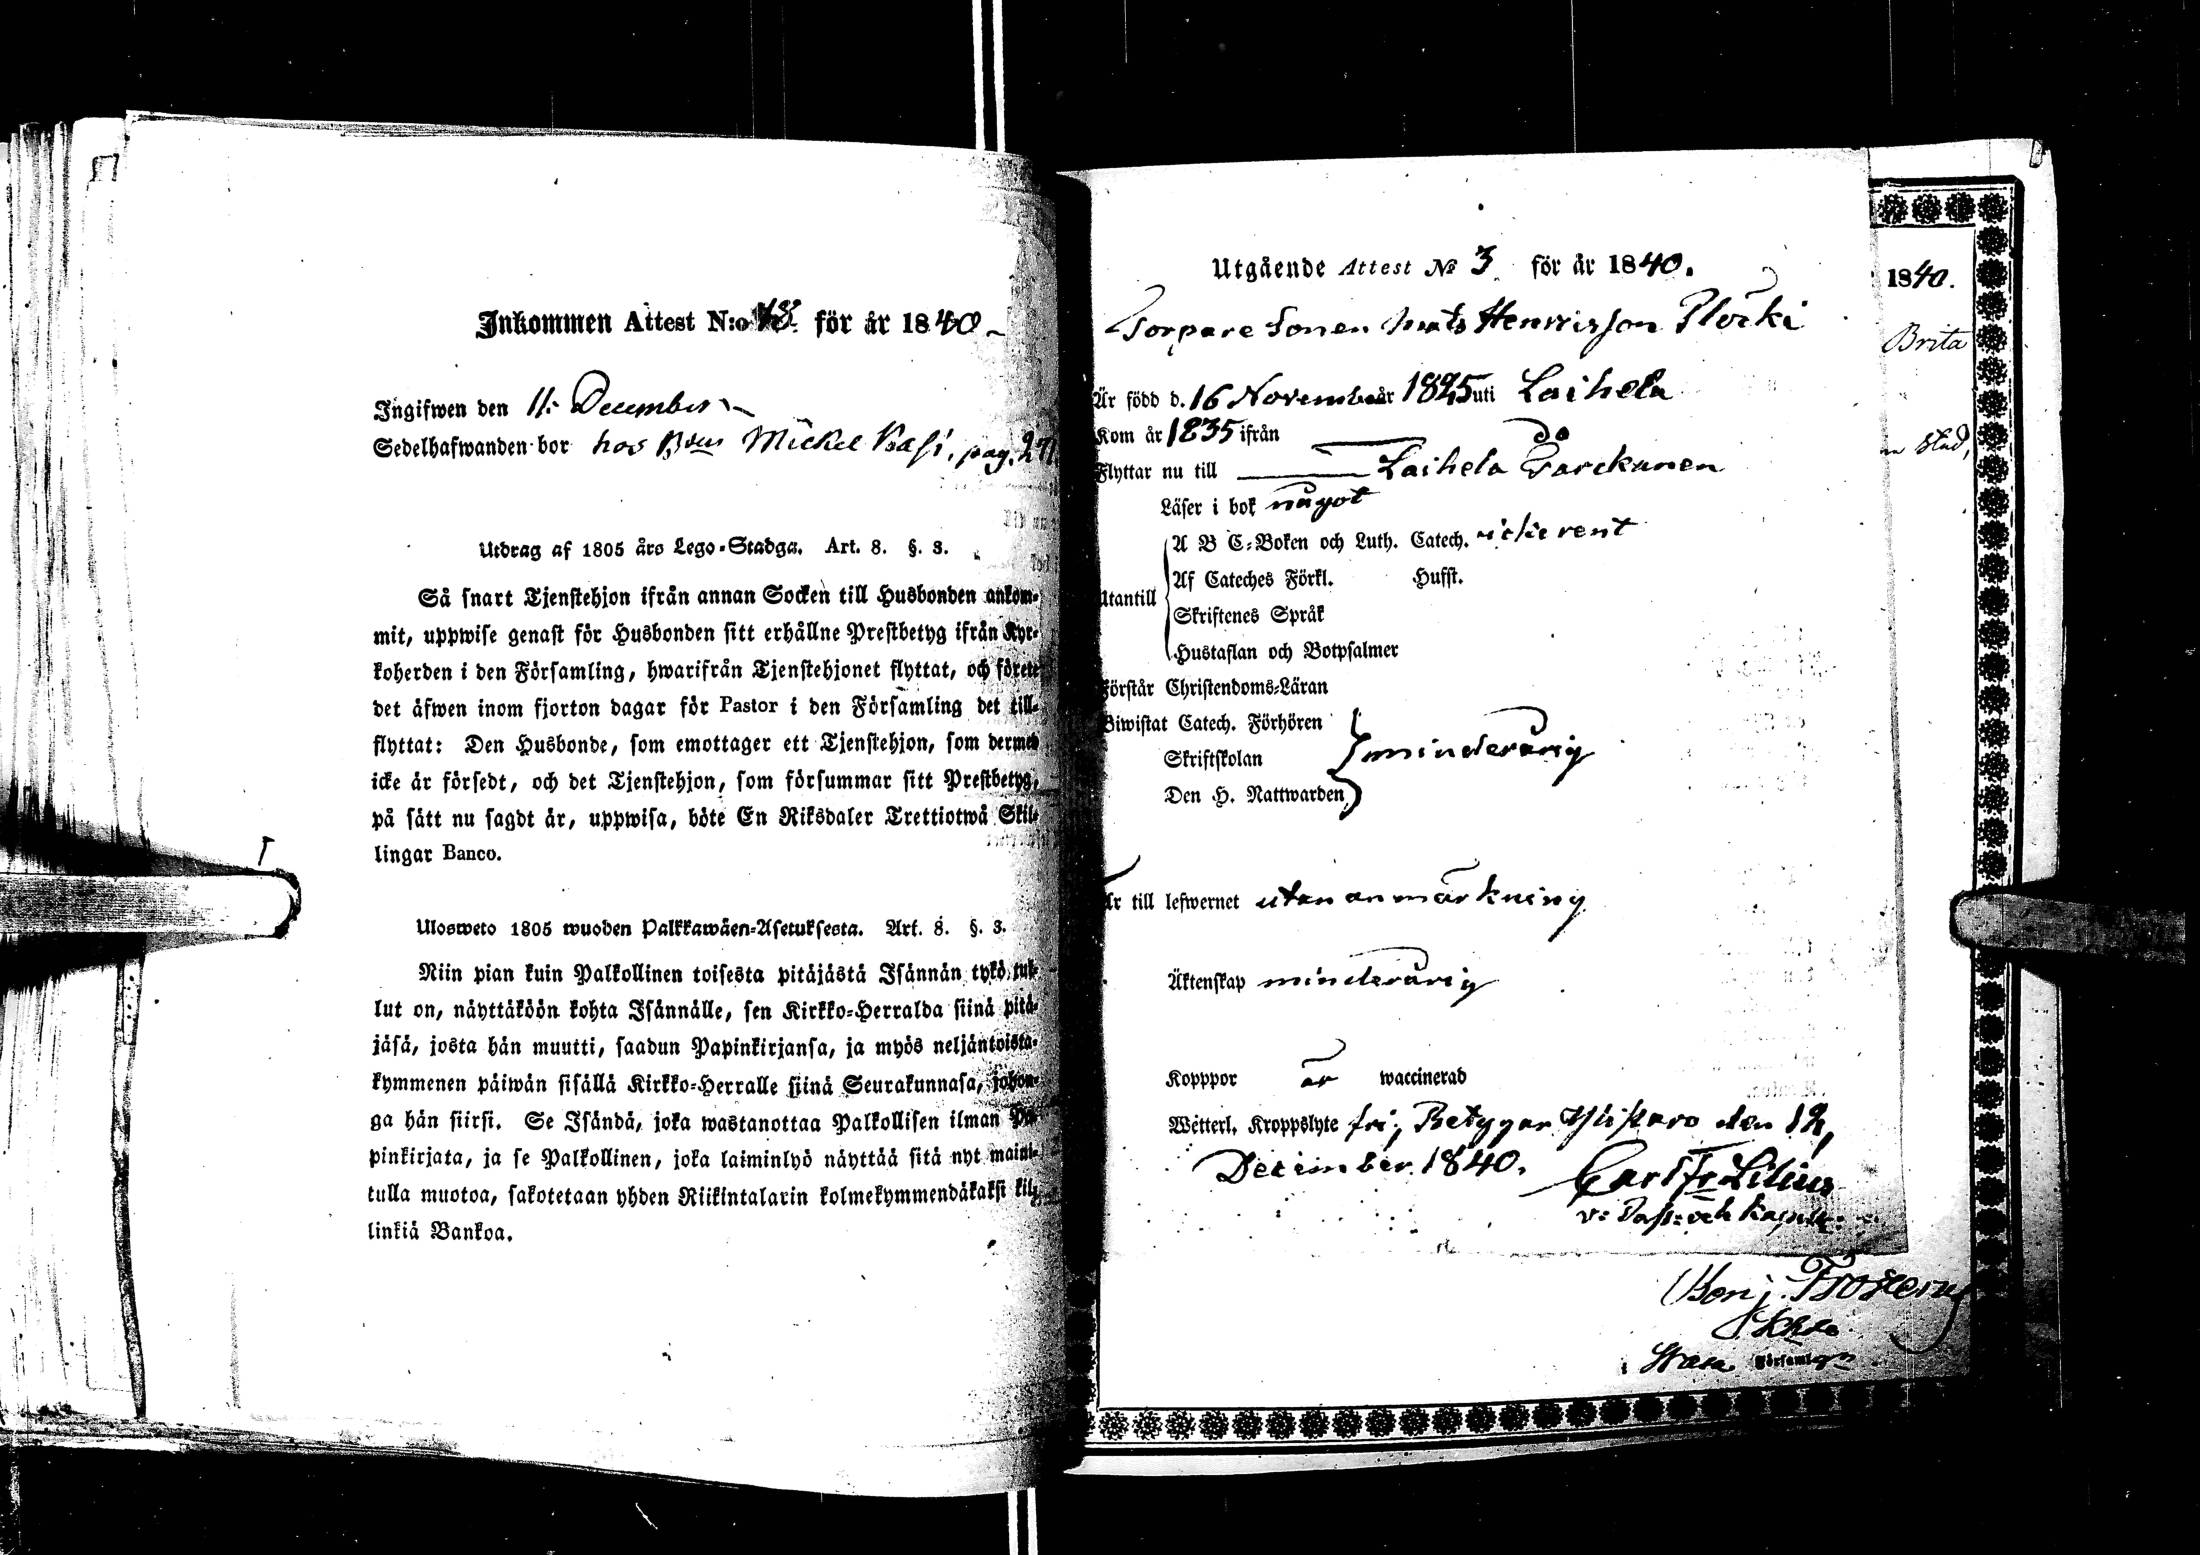 Inkommen Attest N:o 48. för år 1840
Ingifwen den 11. December
Sedelhafwanden bor hos Bdens Mickel Kasi, pag. 271
Utdrag af 1805 års Lego-Stadga. Art. 8. §. 3.
Så snart Tjenstehjon ifrån annan Socken till Husbonden ankom-
mit, uppwise genast för Husbonden sitt erhållne Prestbetyg ifrån Kyr-
koherden i den Församling, hwarifrån Tjenstehjonet flyttat, och förete
det äfwen inom fjorton dagar för Pastor i den Församling det till-
flyttat: Den Husbonde, som emottager ett Tjenstehjon, som dermed
icke är försedt, och det Tjenstehjon, som försummar sitt Prestbetyg,
på sätt nu sagdt är, uppwisa, böte En Riksdaler Trettiotwå Skil-
lingar Banco.
Ulosweto 1805 wuoden Palkkawäen-Asetuksesta. Art. 8. §. 3.
Niin pian kuin Palkollinen toisesta pitäjästä Isännän tykö tul-
lut on, näyttäköön kohta Isännälle, sen Kirkko-Herralda siinä pitä-
jäsä, josta hän muutti, saadun Papinkirjansa, ja myös neljäntoista-
kymmenen päiwän sisällä Kirkko-Herralle siinä Seurakunnasa, johon-
ga hän siirsi. Se Isändä, joka wastanottaa Palkollisen ilman Pa-
pinkirjata, ja se Palkollinen, joka laiminlyö näyttää sitä nyt maini-
tulla muotoa, sakotetaan yhden Riikintalarin kolmekymmendäkaksi kil-
linkiä Bankoa.
Utgående Attest No 3 för år 1840.
Torpare Sonen Mats Henricsson Plocki
Är född d. 16 November år 1825 uti Laihela
Kom år 1835 ifrån
Flyttar nu till Laihela
Läser i bok något
A B C-Boken och Luth. Catech. icke rent
Af Cateches Förkl. Hufst.
Utantill
Skriftenes Språk
Hustaflan och Botpsalmer
Förstår Christendoms-Läran
Biwistat Catech. Förhören
Skriftskolan minderårig
Den H. Nattwarden
Är till lefwernet utan anmärkning
Äktenskap minderårig
Kopppor är waccinerad
Wetterl. Kroppslyte fri, Betygar Ylistaro den 12,
December 1840. Carl Fr Lilius
v: Past: och
1840.
Brita
stad,
Benj. Frosterus
i Wasa Församlgn